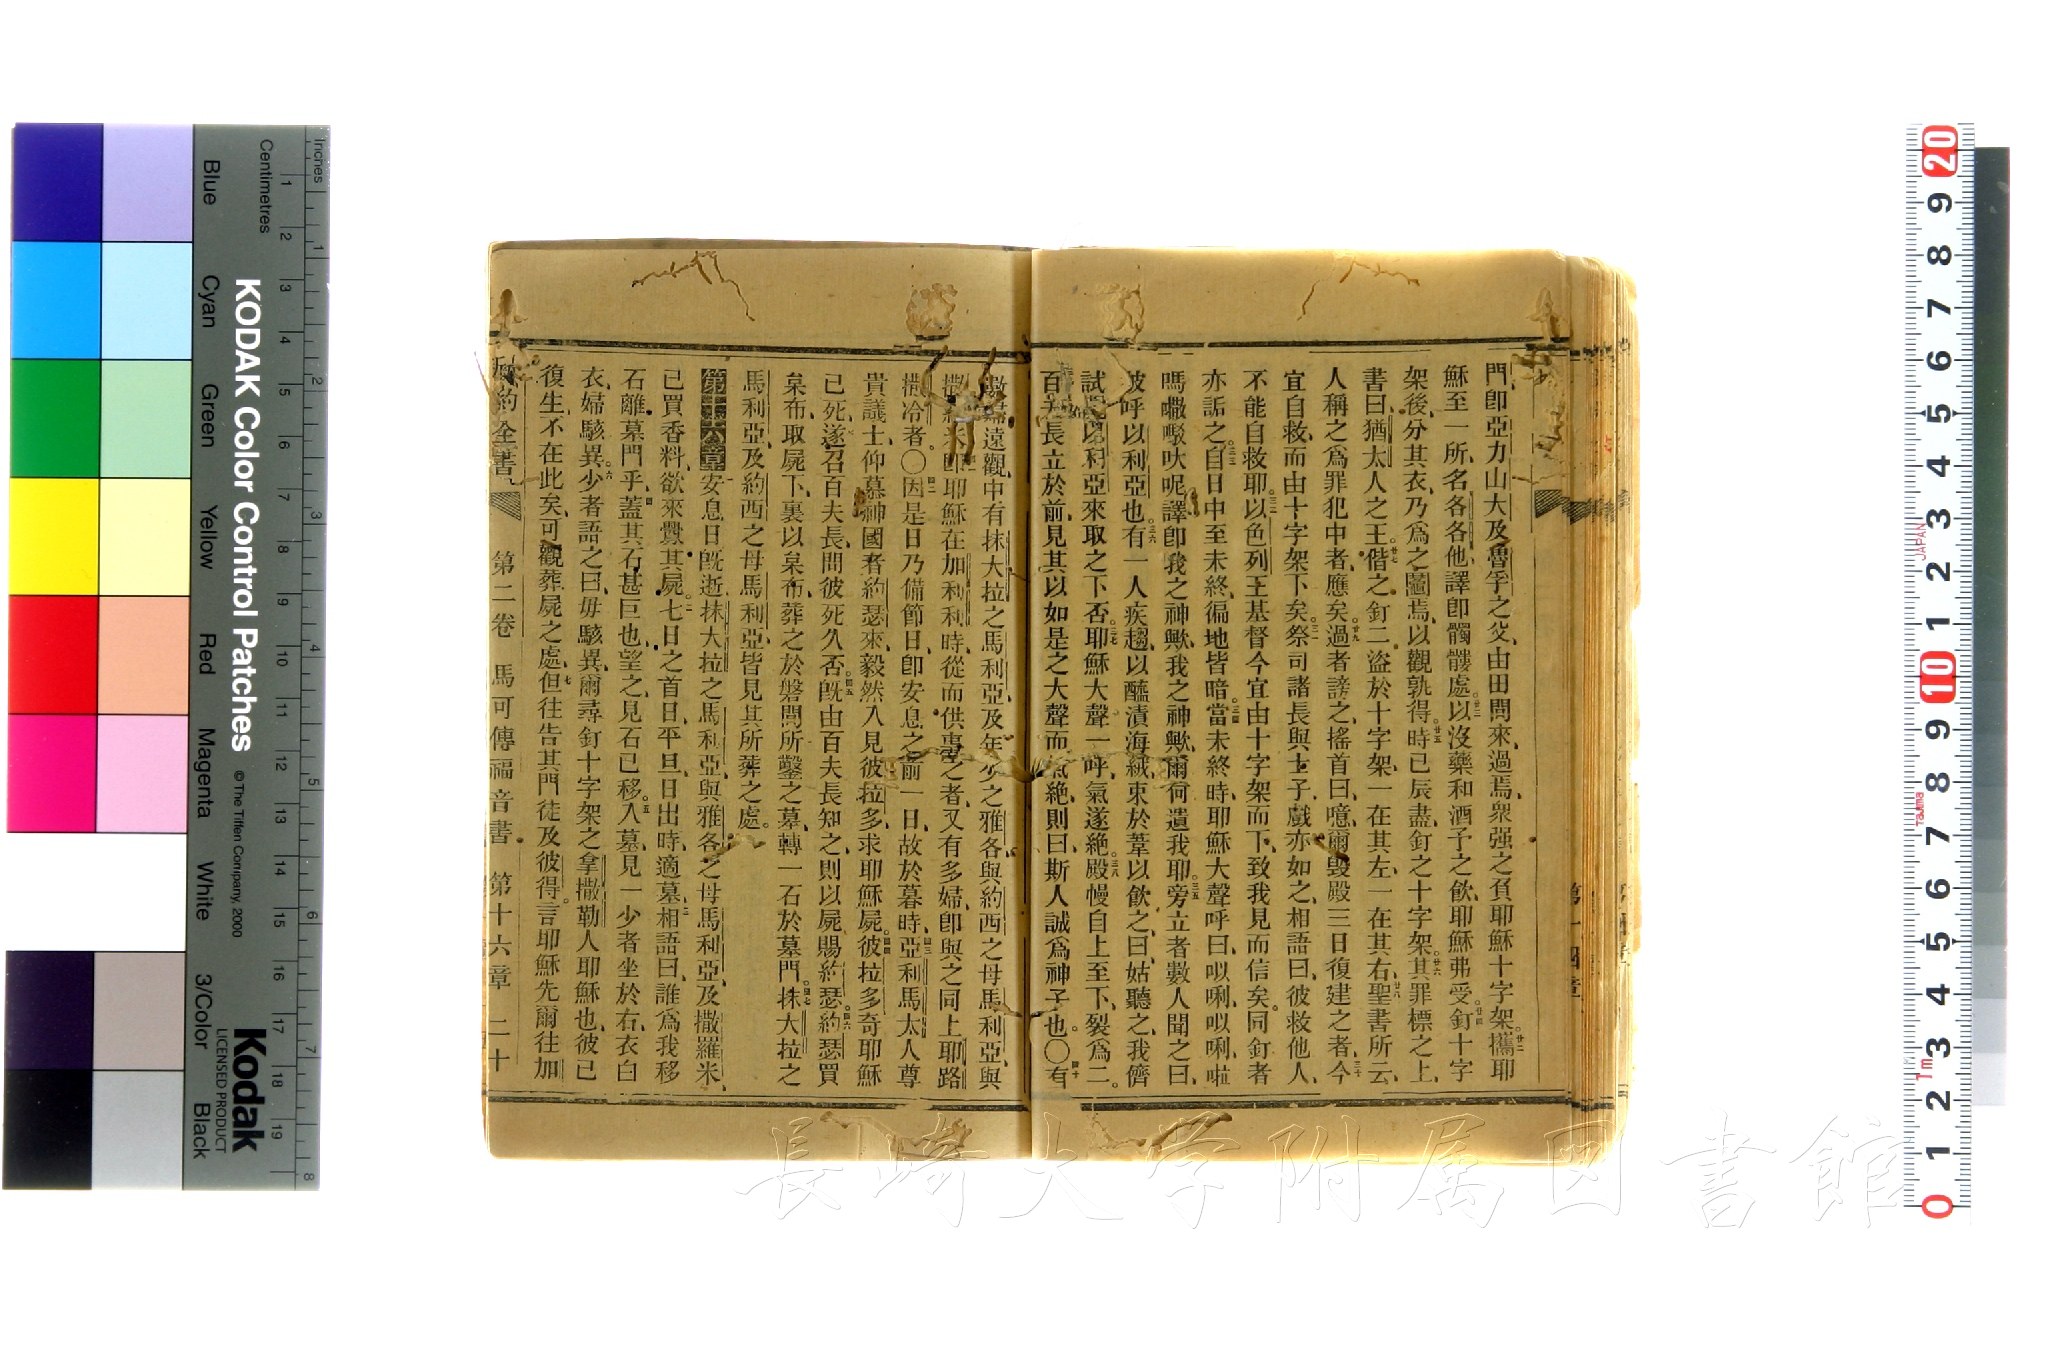 門卽亞力山大及魯孚之父由田間來過焉衆强之負耶穌十字架攜耶
穌至一所名各各他譯卽髑髏處以沒藥和酒予之飮耶穌弗受釘十字
架後分其衣乃爲之鬮焉以觀孰得時已辰盡釘之十字架其罪標之上
書曰猶太人之王偕之釘二盜於十字架一在其左一在其右聖書所云
人稱之爲罪犯中者應矣過者謗之搖首曰噫爾毀殿三日復建之者今
宜自救而由十字架下矣祭司諸長與士子戲亦如之相語曰彼救他人
不能自救耶以色列王基督今宜由十字架而下致我見而信矣同釘者
亦詬之自日中至未終徧地皆暗當未終時耶穌大聲呼曰㕥唎㕥唎啦
嗎㘔㘑吠呢譯卽我之神歟我之神歟爾何遺我耶旁立者數人聞之曰
彼呼以利亞也有一人疾趨以醯漬海絨束於葦以飮之曰姑聽之我儕
試觀以利亞來取之下否耶穌大聲一呼氣遂絶殿幔自上至下裂爲二
百夫長立於前見其以如是之大聲而氣絶則曰斯人誠爲神子也〇有
遠觀中有抹大拉之馬利亞及年少之雅各與約西之母馬利亞與
耶穌在加利利時從而供事之者又有多婦卽與之同上耶路
撒冷者〇因是日乃備節日卽安息之前一日故於暮時亞利馬太人尊
貴議士仰慕神國者約瑟來毅然入見彼拉多求耶穌屍彼拉多奇耶穌
已死遂召百夫長問彼死久否旣由百夫長知之則以屍賜約瑟約瑟買
枲布取屍下裹以枲布葬之於磐間所鑿之墓轉一石於墓門抹大拉之
馬利亞及約西之母馬利亞皆見其所葬之處
第十六章安息日旣逝抹大拉之馬利亞與雅各之母馬利亞及撒羅米
已買香料欲來釁其屍七日之首日平旦日出時適墓相語曰誰爲我移
石離墓門乎蓋其石甚巨也望之見石已移入墓見一少者坐於右衣白
衣婦駭異少者語之曰毋駭異爾尋釘十字架之拿撒勒人耶穌也彼已
復生不在此矣可觀葬屍之處但往告其門徒及彼得言耶穌先爾往加
約全書 第二卷 馬可傳福音書 第十六章 二十
長崎大学附属図書館
KODAK Color Control Patches
© The Tiffen Company, 2000
Kodak
LICENSED PRODUCT
Inches
Centimetres
Blue
Cyan
Green
Yellow
Red
Magenta
White
3/Color
Black
1 2 3 4 5 6 7 8 9 10 11 12 13 14 15 16 17 18 19
1 2 3 4 5 6 7 8
20 9 8 7 6 5 4 3 2 1 10 9 8 7 6 5 4 3 2 1 0
JAPAN
Tajima
1m